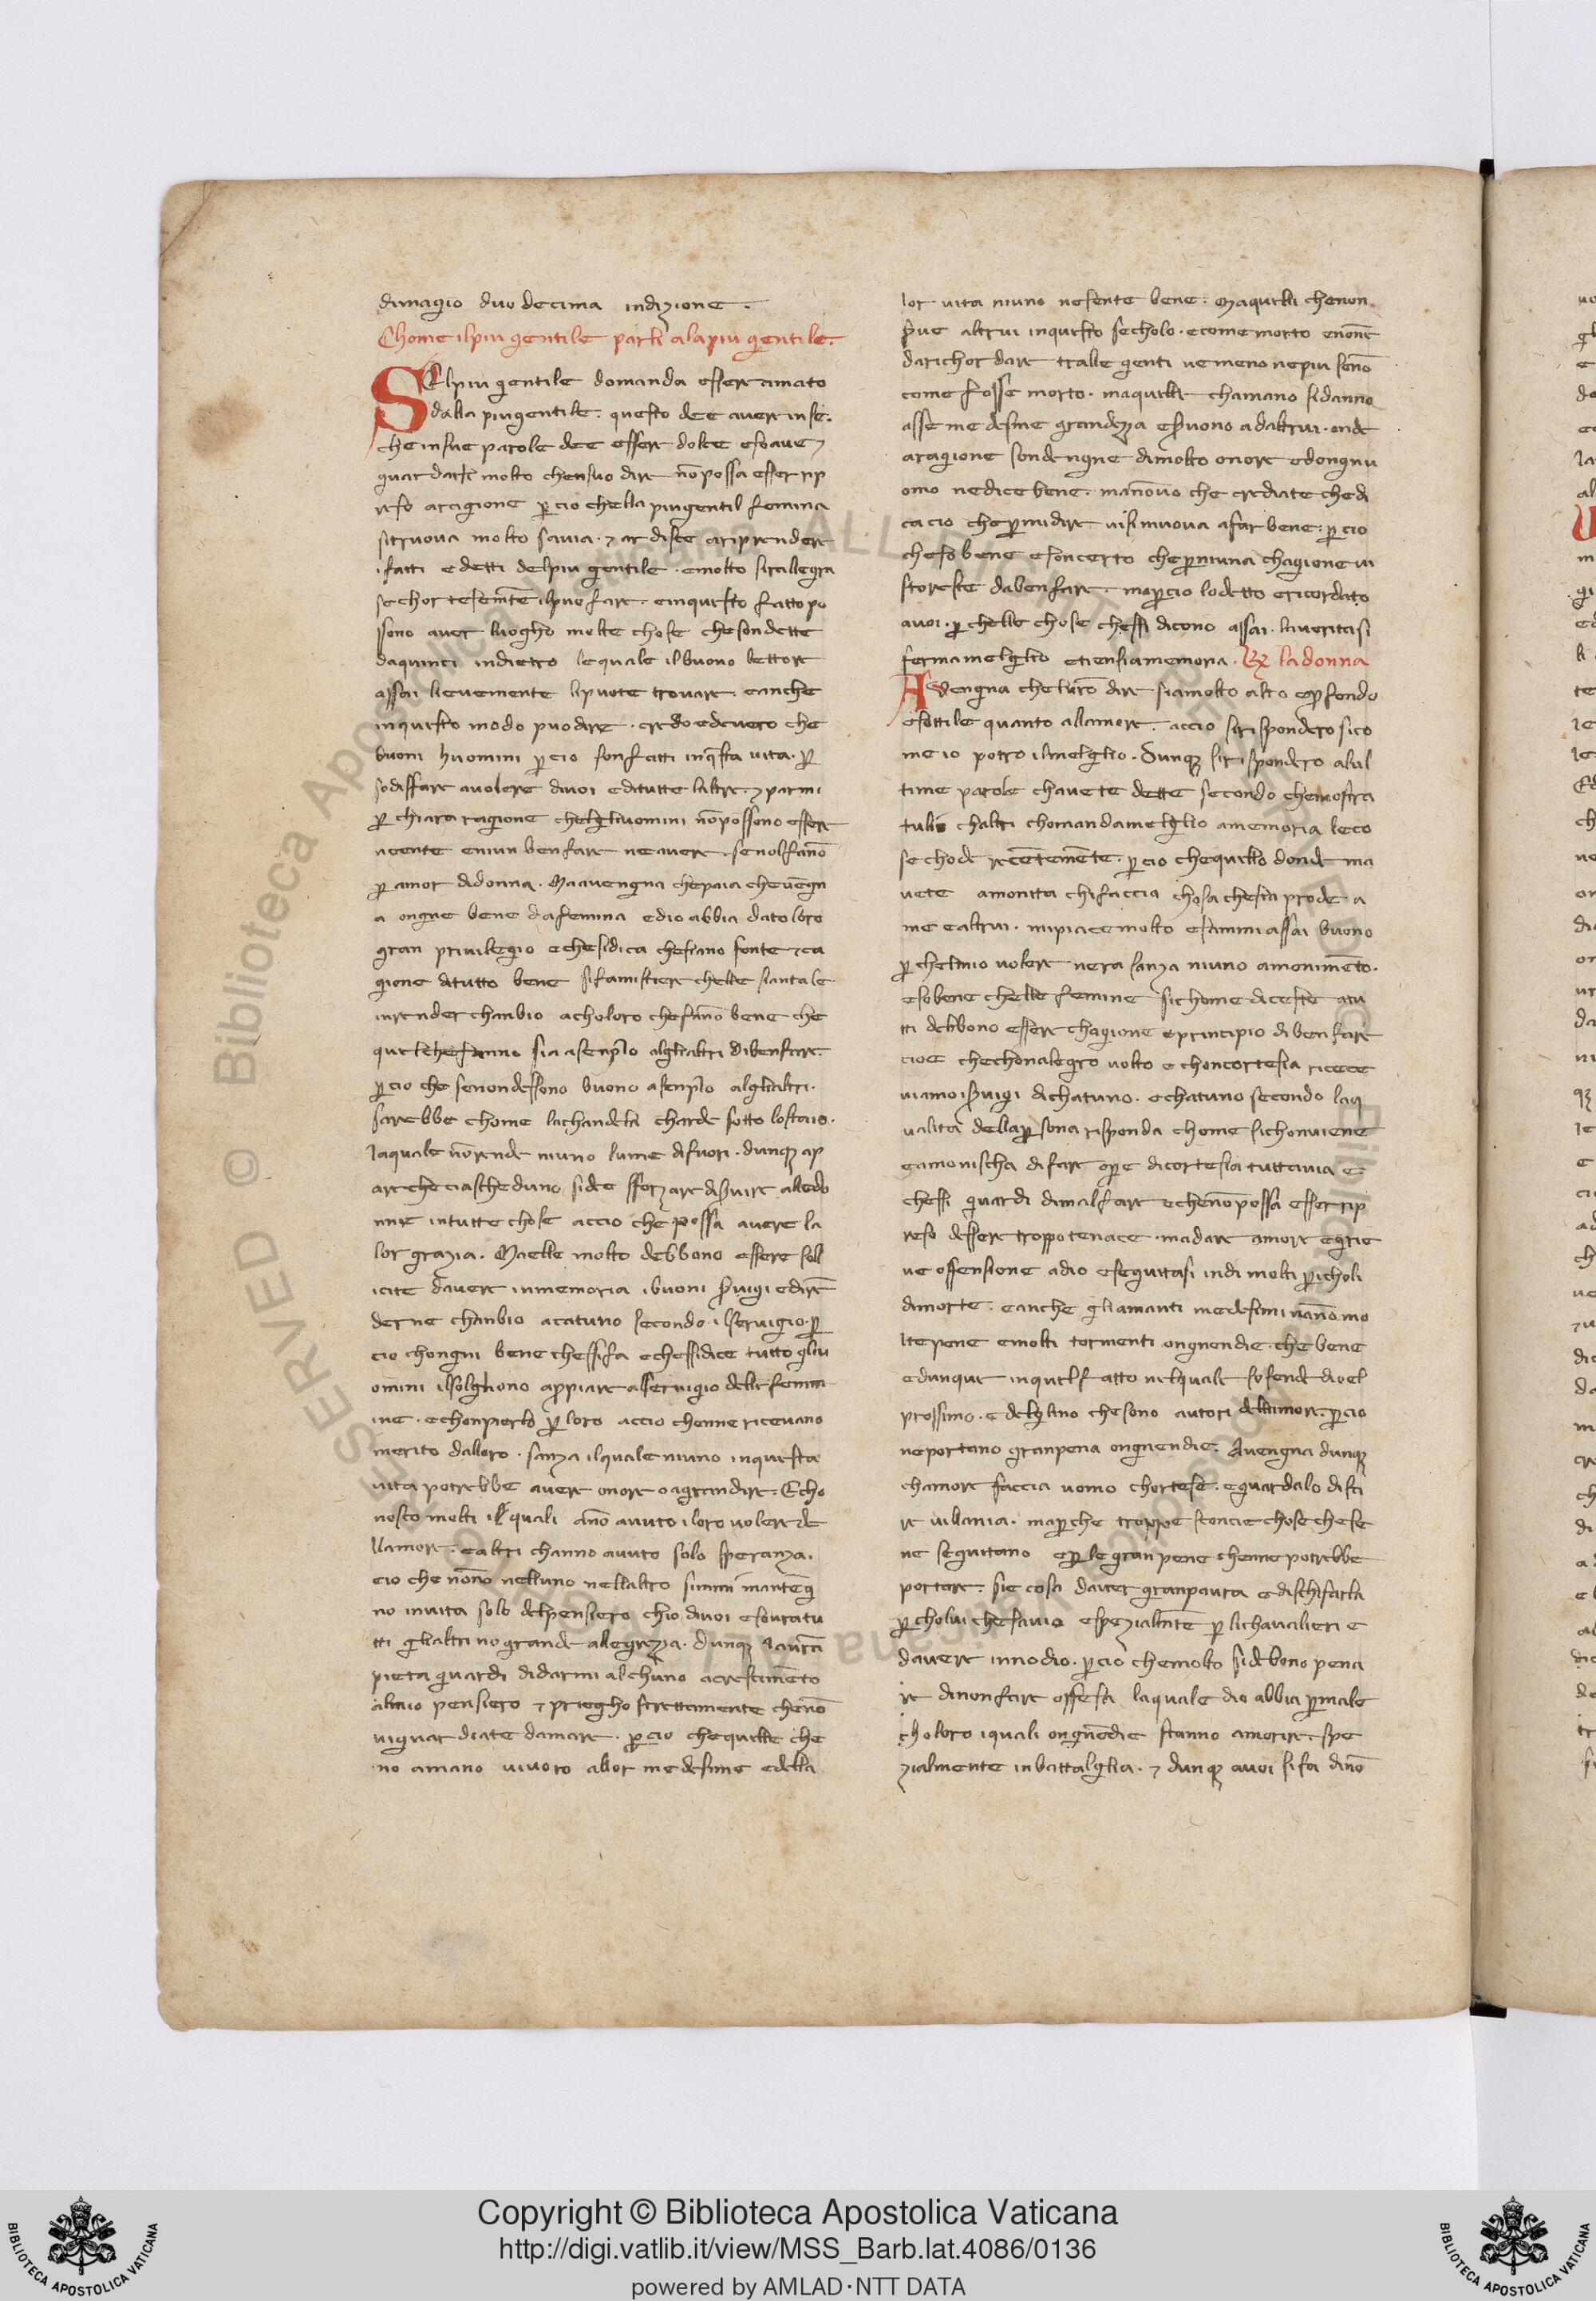 dimagio duo decima indizione.
Chome ilpiu gentile parli alapiu gentile.
SElpiu gentile domanda essere amato
dalla piugentile. questo dee aver inse.
che insue parole dee esser dolce esoave ⁊
guardarsi molto chensuo dire nō possa esser rip
reso aragione ꝑ cio chella piugentil femina
sitruova molto savia. ⁊ ardisce ariprendere
ifatti edetti delpiu gentile. emolto sirallegra
se chortesemēte ilpuo fare. einquesto fatto po
ssono aver luogho molte chose chesondette
daquinci indietro lequale ilbuono lettore
assai lievemente lipuote trovare. eanche
inquesto modo puo dire. credo edevero che
buoni huomini ꝑ cio sonfatti inq̄sta vita. ꝑ
sodisfare avolere divoi editutte laltre. ⁊ parmi
ꝑ chiara ragione chelgliuomini nōpossono esser
neente eniun benfare neavere. senolfāno
ꝑ amor didonna. Maavengna chepaia chevēgn
a ongne bene dafemina edio abbia dato loro
gran privilegio echesidica chesiano fonte ⁊ ca
gione ditutto bene sifamistiere chelle siantale
inrender chanbio acholoro chefāno bene che
quelchefanno sia asenplo aglialtri dibenfare.
ꝑ cio che senondessono buono asenplo alglialtri.
sarebbe chome lachandela charde sotto lostaio.
laquale nōrende niuno lume difuori. dunqꝫ ap
are checiascheduno side sforzare diservire alledo
nne intutte chose accio che possa avere la
lor grazia. Maelle molto debbono essere soll
icite daver inmemoria ibuoni servigi edirē
derne chanbio acatuno secondo ilservigio. ꝑ
cio chongni bene chessifa echessidice tutto gliu
omini ilsolgliono apiare alservigio delle femin
ine. echonpierlo ꝑ loro accio chenne ricevano
merito dalloro. sanza ilquale niuno inquesta
vita potrebbe avere onore o agrandire. Echo
nosco molti ilquali āno avuto iloro volere de
llamore. ealtri channo avuto solo speranza.
cio che nōno nelluno nellaltro simmi mantēg
no invita solo delpensiero chio divoi esovratu
tti glialtri no grande allegrezza. dunqꝫ lavrā
pieta guardi didarmi alchuno acrescimēto
almio pensiero ⁊ priegho strettamente chenō
viguardiate damare. ꝑ cio chequelle che
no amano vivoro allor medesime edella
lor vita niuno nesente bene. Maquelli chenon
serve altrui inquesto secholo. ecomemorto enonē
darichordare tralle genti nemeno nepiu senō
come fosse morto. maquelle chamano sidanno
assè medesme grandezza eservono adaltrui. onde
aragione sondengne dimolto onore edongnu
omo nedice bene. manōvo che crediate chedi
ca cio cheꝑmidire visimuova afar bene. ꝑ cio
cheso bene esoncerto cheꝑniuna chagione vi
storeste dabenfare. maꝑcio lodetto ericordato
avoi. ꝑ chelle chose chessi dicono assai. laveritasi
fermamelglio etiensiamemoria. Rx ladonna
AVengna cheturō dire siamolto alto eꝓfondo
esottile quanto allamore. accio sirispondero sico
me io potro ilmelglio. Dunqꝫ sirispondero alul
time parole chavete dette secondo chemostra
tulis chaltri chomandamelglio amemoria leco
se chode recētemēte. ꝑ cio chequello donde ma
vete amonita chifaccia chosa chesia prode a
me ealtrui. mipiacemolto esimmi assai buono
ꝑ chelmio volere nera sanza niuno amonimēto.
esobene chelle femine sichome diceste atu
tti debbono essere chagione eprincipio diben fare
cioe chechonalegro volto e choncortesia ricece
viamo iservigi dichatuno. echatuno secondo laq
ualita dellaꝑsona risponda chome sichonviene
eamonischa difare oꝑe dicortesia tuttavia e
chessi guardi dimalfare echenō possa esser rip
reso dessere troppotenace. madare amore egrie
ve offensione adio eseguitasi indi molti ꝑicholi
dimorte. eanche gliamanti medesimi nāno mo
ltepene emolti tormenti ongnendie. che bene
edunque inquelfatto nelquale sofende dioel
prossimo. edelglino chesono autori dellamore. ꝑ cio
neportano granpena ongnendie. Avengna dunqꝫ
chamore faccia uomo chortese. eguardalo disti
re villania. maꝑche troppe sconcie chose chese
ne seguitano eꝑ le gran pene chenne potrebbe
portare. sie cosa daver granpaura edaschifarla
ꝑ cholui chesavio espezialmēte ꝑ lichavalieri e
davere innodio. ꝑ cio chemolto sidebono pena
re dinonfare offesa laquale dio abbia ꝑmale
choloro iquali ongnēdie stanno amorire. spe
zialmente inbattalglia. ⁊ dunqꝫ avoi sifa dinō
Copyright © Biblioteca Apostolica Vaticana
http://digi.vatlib.it/view/MSS_Barb.lat.4086/0136
powered by AMLAD·NTT DATA
BIBLIOTECA APOSTOLICA VATICANA
BIBLIOTECA APOSTOLICA VATICANA